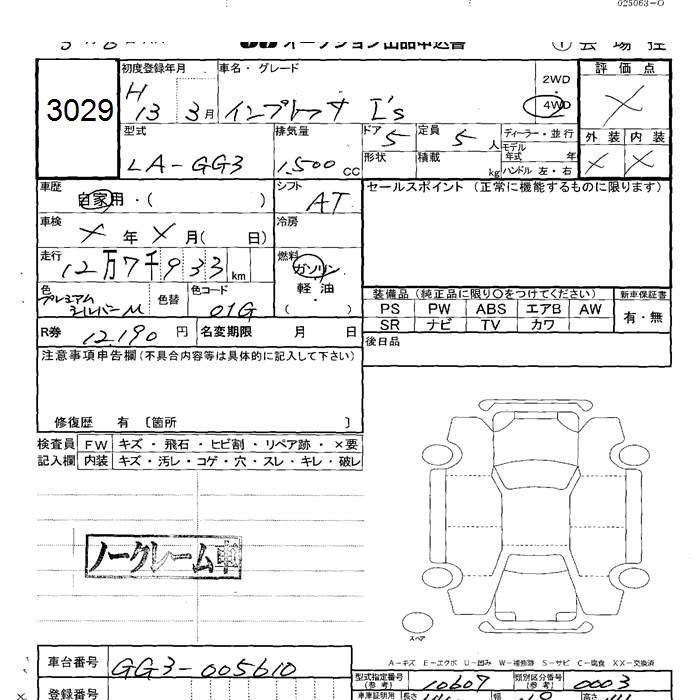 025063-0
JU オークション出品申込書 ① 会場控
3029
初度登録年月 車名・グレード 2WD 評価点
H 13 3月 インプレッサ I's 4WD X
型式 排気量 ドア 5 定員 5人 ディーラー・並行 外装 内装
LA-GG3 1,500 CC 形状 積載 kg モデル年式 年 X X
ハンドル 左・右
車歴 シフト セールスポイント (正常に機能するものに限ります)
自家用・( ) AT
車検 冷房
X年X月( 日)
走行 燃料
12万7千933km ガソリン
軽油
( )
色 色替 色コード 装備品 (純正品に限り○をつけてください) 新車保証書
プレミアムシルバーM 01G PS PW ABS エアB AW 有・無
SR ナビ TV カワ
R券 12,190円 名変期限 月 日 後日品
注意事項申告欄(不具合内容等は具体的に記入して下さい)
修復歴 有 〔箇所 〕
検査員 FW キズ・飛石・ヒビ割・リペア跡・×要
記入欄 内装 キズ・汚レ・コゲ・穴・スレ・キレ・破レ
ノークレーム車
スペア
A-キズ E-エクボ U-凹み W-補修跡 S-サビ C-腐食 XX-交換済
車台番号 GG3-005610 型式指定番号(参考) 10607 類別区分番号(参考) 0003
登録番号 車庫証明用 長さ